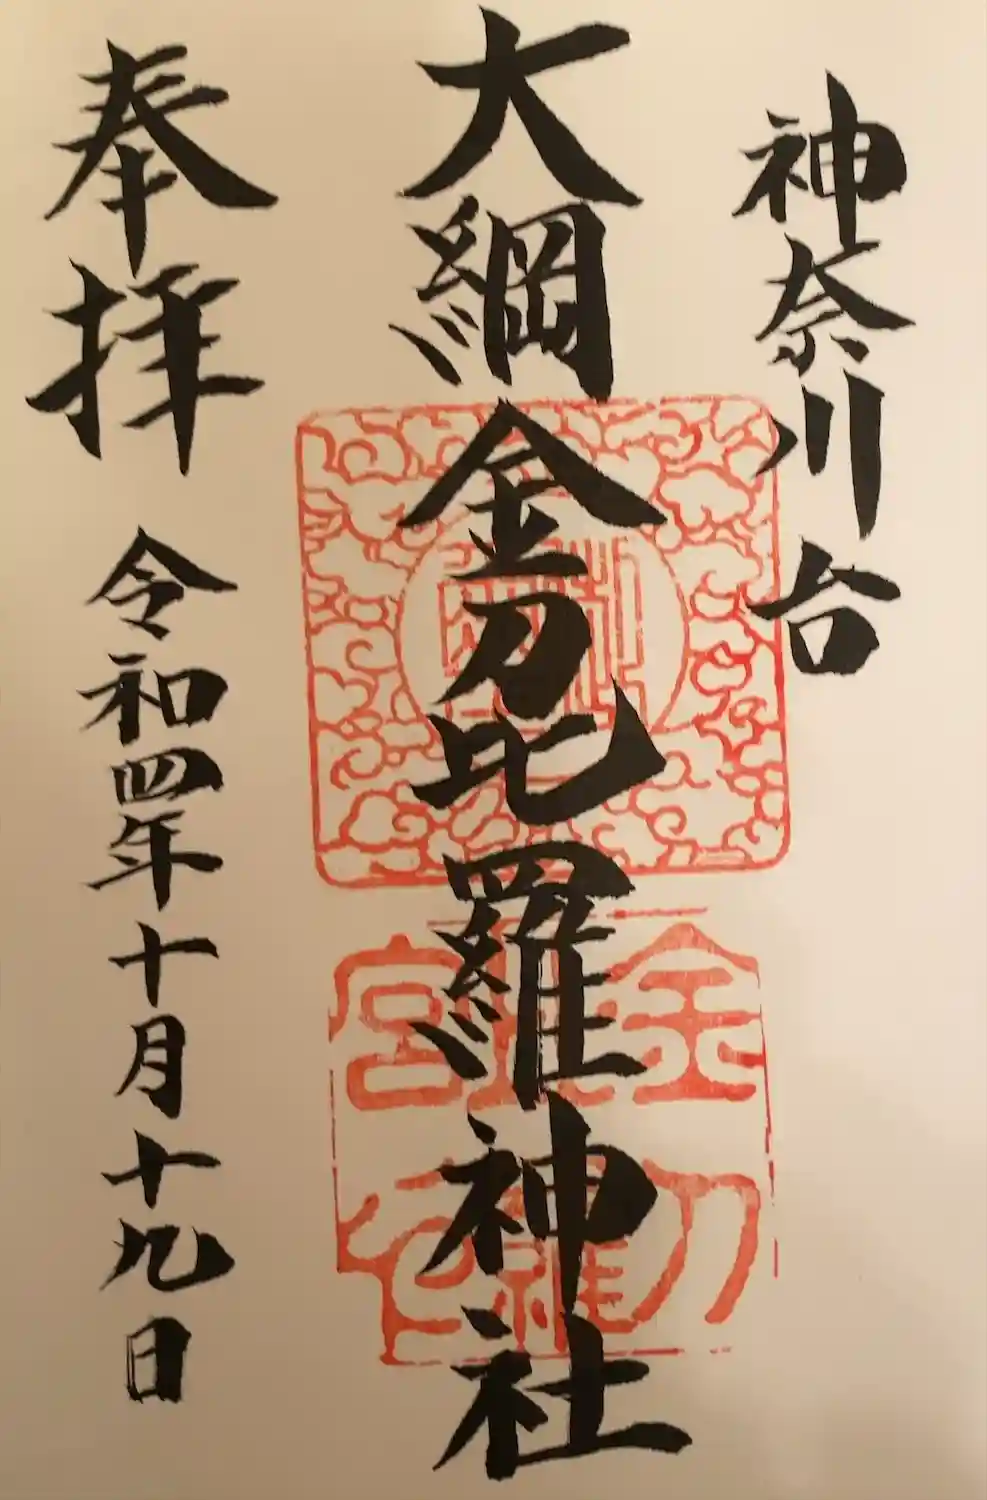 神奈川台
大綱金刀比羅神社
奉拝 令和四年十月十九日